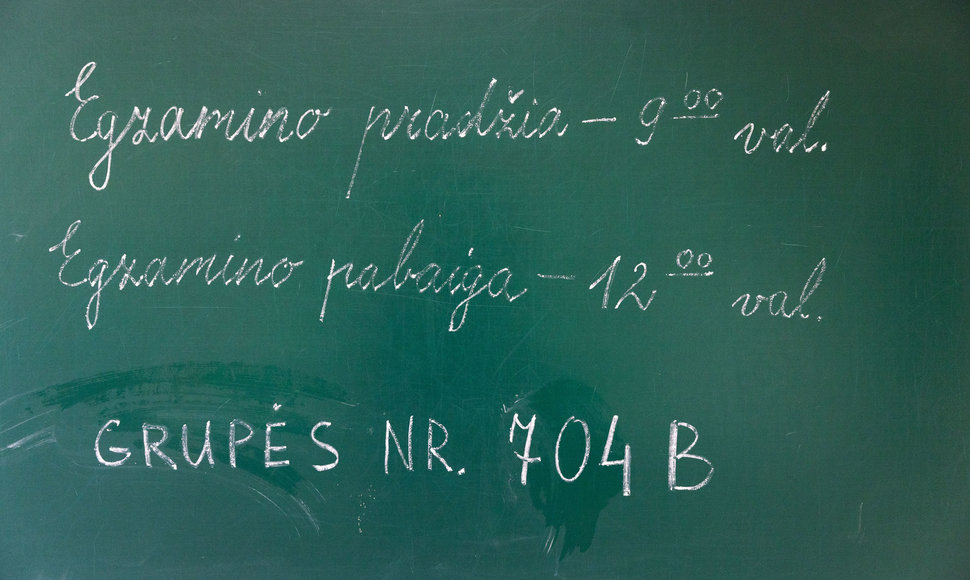 Egzamino pradžia – 9⁰⁰ val.
Egzamino pabaiga – 12⁰⁰ val.
GRUPĖS NR. 704 B